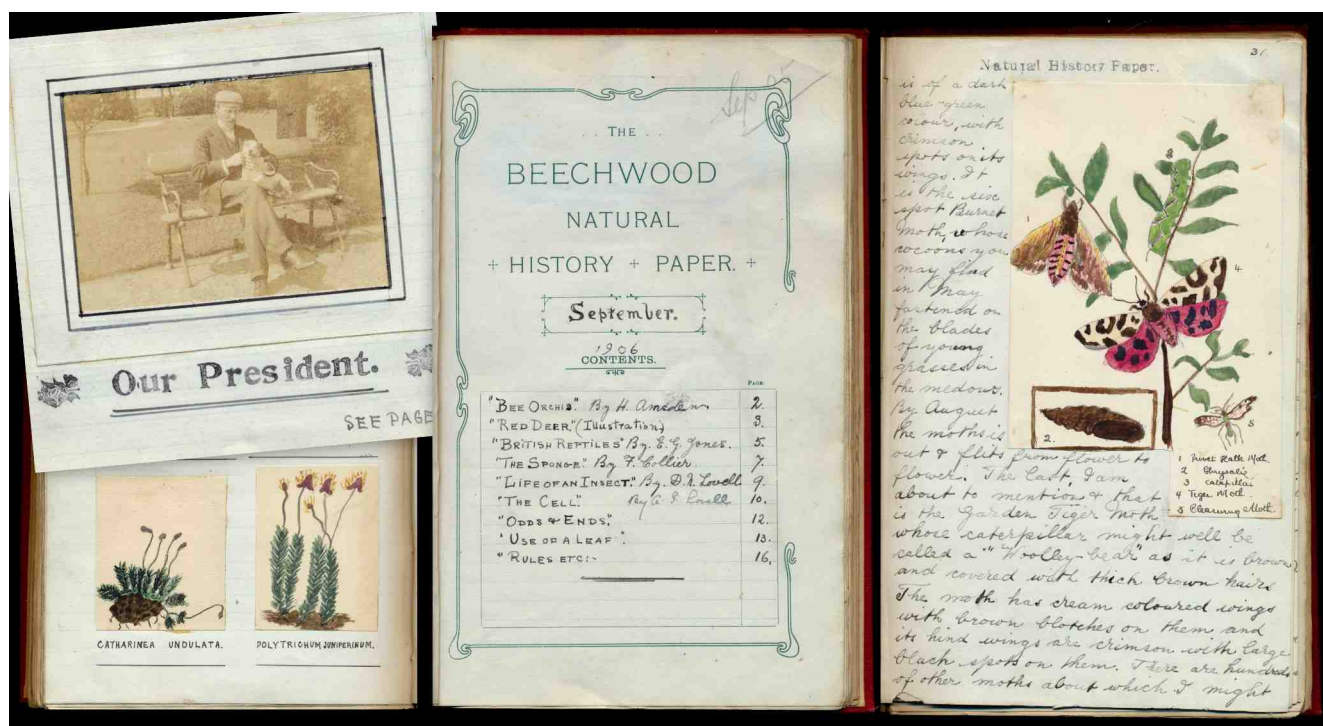 Our President.
SEE PAGE
CATHARINEA UNDULATA.
POLYTRICHUM JUNIPERINUM.
Sep
.. THE ..
BEECHWOOD
NATURAL
+ HISTORY + PAPER. +
September.
1906
CONTENTS.
PAGE
"BEE ORCHID". By H. Amsden. 2.
"RED DEER" (Illustration) 3.
"BRITISH REPTILES" By. E. G. Jones. 5.
"THE SPONGE". By F. Collier. 7.
"LIFE OF AN INSECT". By. D. R. Lovell. 9.
"THE CELL". By 10.
"ODDS & ENDS". 12.
"USE OF A LEAF". 13.
"RULES ETC:- 16,
31
Natural History Paper.
is of a dark
blue-green
colour, with
crimson
spots on its
wings. It
is the six
spot Burnet
moth, whose
cocoons you
may find
in May
fastened on
the blades
of young
grasses in
the medows.
By August
the moths is
out & flits from flower to
flower. The last, I am
about to mention & that
is the Garden Tiger Moth
whose caterpillar might well be
called a "Woolley-bear" as it is brown
and covered with thick brown hairs
The moth has cream coloured wings
with brown blotches on them and
its hind wings are crimson with large
black spots on them. There are hundreds
of other moths about which I might
3
4
5
2.
1 Privet Hawk Moth.
2 Chrysalis
3 catapillar
4 Tiger Moth.
5 Clearwing Moth.